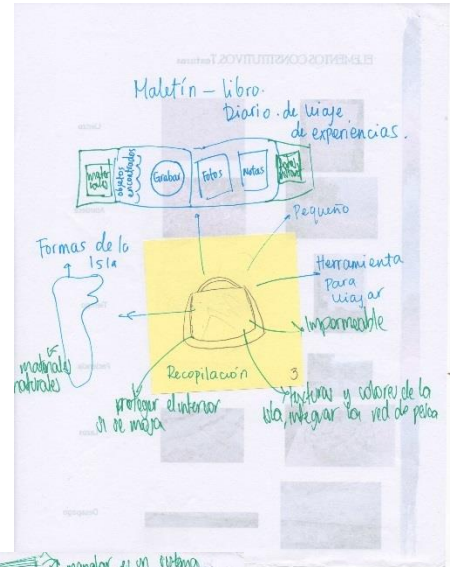 ELEMENTOS CONSTITUTIVOS Texturas
Maletín – libro.
Diario de viaje
de experiencias.
objetos
encontrados
Grabar
Fotos
Notas
Pequeño
Formas de la
Isla
Herramienta
para
viajar
Impermeable
materiales
naturales
Recopilación 3
proteger el interior
si se moja
texturas y colores de la
isla, integrar la red de pesca
manglar es un sistema